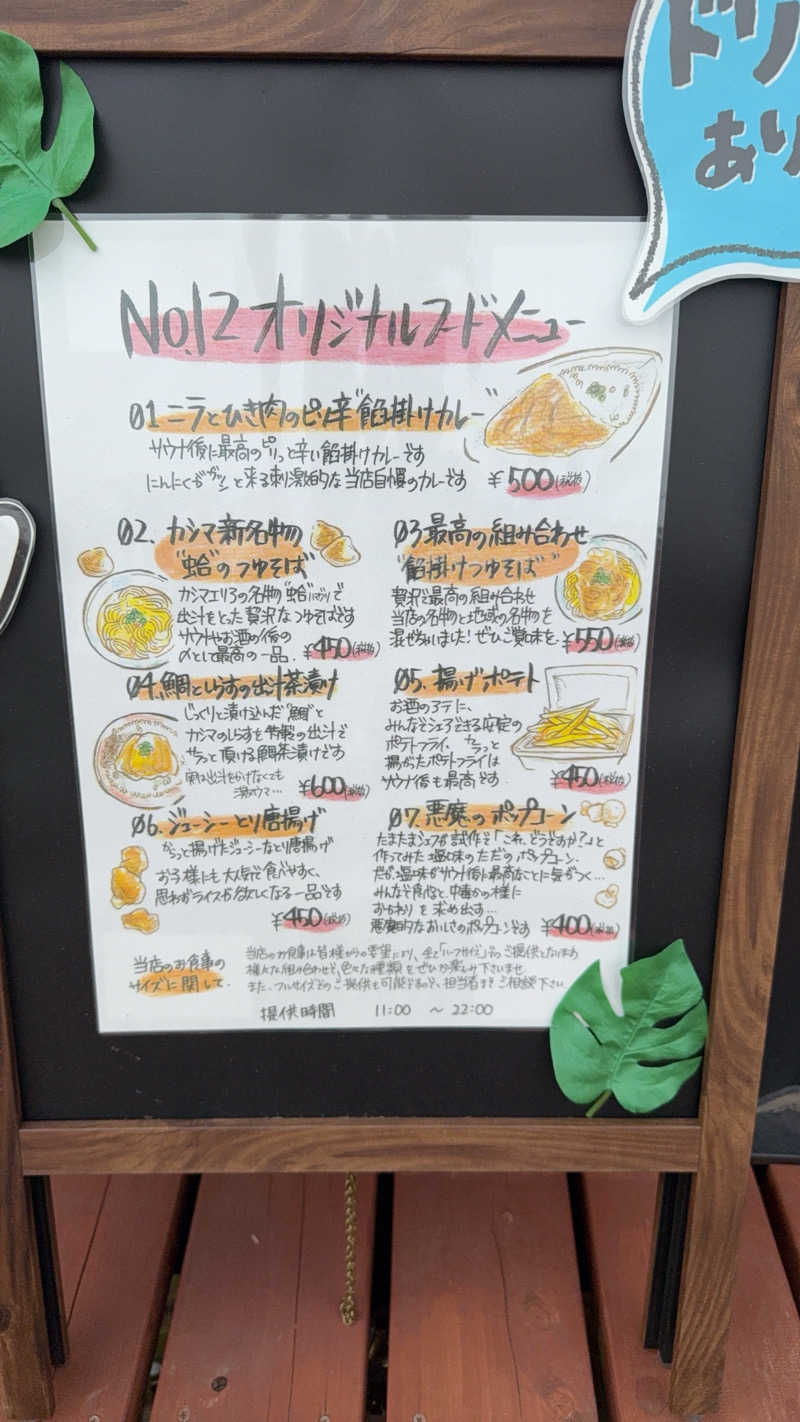 ドリ
あり
No.12 オリジナルフードメニュー
01 ニラとひき肉のピリ辛"餡掛けカレー"
サウナ後に最高のピリっと辛い餡掛けカレーです
にんにくがガツンと来る刺激的な当店自慢のカレーです
¥500(税抜)
02. カシマ新名物
"蛤"のつゆそば"
カシマエリアの名物"蛤"
出汁をとった贅沢なつゆそばです
サウナやお酒の後の
〆として最高の一品.
¥450(税抜)
03 最高の組み合わせ
"餡掛けつゆそば"
贅沢で最高の組み合わせ
当店の名物と地域の名物を
混ぜちゃいました!ぜひご賞味を.
¥550(税抜)
04. 鯛としらすの出汁茶漬け
じっくりと漬け込んだ"鯛"と
カシマのしらすを特製の出汁で
サラっと頂ける鯛茶漬けです
実は出汁をかけなくても
激ウマ…
¥600(税抜)
05. 揚げポテト
お酒のアテに、
みんなでシェアできる安定の
ポテトフライ、カラっと
揚がったポテトフライは
サウナ後も最高です.
¥450(税抜)
06. ジューシーとり唐揚げ
からっと揚げたジューシーなとり唐揚げ
お子様にも大人気で食べやすく、
思わずライスが欲しくなる一品です
¥450(税抜)
07. 悪魔のポップコーン
たまたまシェフが試作で「これ、どうですか?」と
作ってみた塩味のただのポップコーン.
だが、塩味がサウナ後に最高なことに気がつく…
みんな食べると、中毒かの様に
おかわりを求め出す…
悪魔的なおいしさのポップコーンです
¥400(税抜)
当店のお食事の
サイズに関して.
当店のお食事は皆様からの要望により、全て「ハーフサイズ」でのご提供となります
様々な組み合わせで、色々な種類をぜひお楽しみ下さいませ
また、フルサイズでのご提供も可能ですので、担当者までご相談下さい.
提供時間 11:00 ～ 22:00